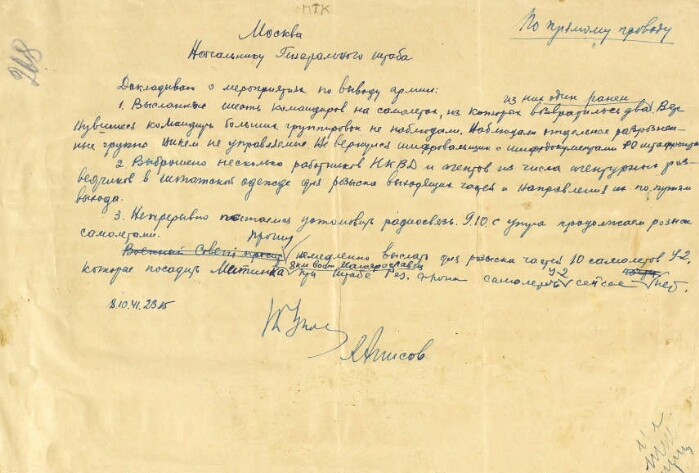 ПТК
По прямому проводу
268
Москва
Начальнику Генерального штаба
Докладываю о мероприятиях по выводу армии:
из них один ранен
1. Высланные шесть командиров на самолетах, из которых возвратилось два. Вер
нувшиеся командиры больших группировок не наблюдали. Наблюдали отдельные разрознен
ные группы никем не управляемые. Не вернулся шифровальщик с шифродокументами
2. Выброшено несколько работников НКВД и агентов из числа агентурных раз
ведчиков в штатской одежде для розыска выходящих частей и направления их по путям
выхода.
3. Непрерывно пытаемся установить радиосвязь. 9.10. с утра продолжаем розыск
самолетами.
прошу
Военный Совет просит немедленно выслать для розыска частей 10 самолетов У-2,
которые посадить при штабе Рез. фронта самолетов У-2 сейчас нет.
8.10.41. 23.15